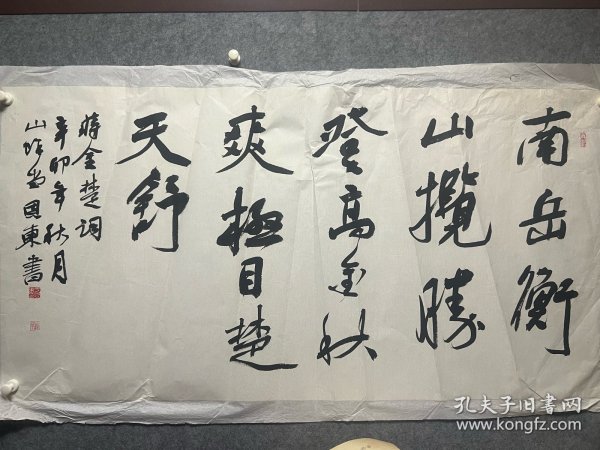 南岳衡
山揽勝
登高金秋
爽極目楚
天舒
蒋金楚词
辛卯年秋月
国東書
孔夫子旧書网
www.kongfz.com